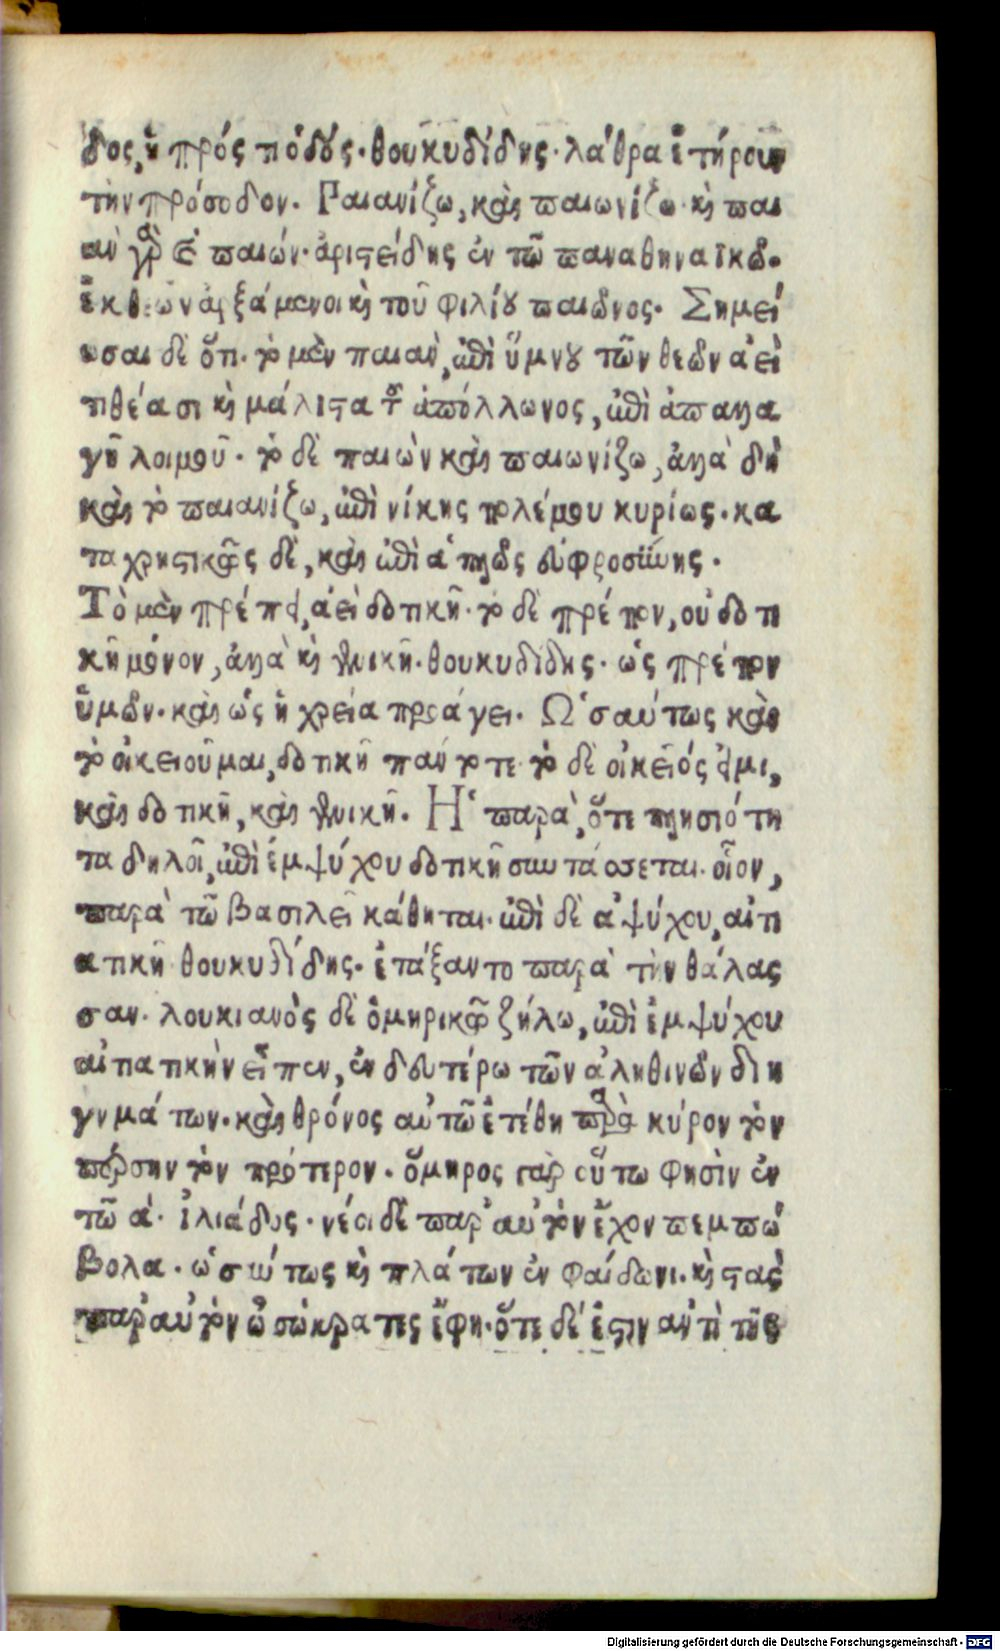 δος, ἢ πρός πόδους. θουκυδίδης. λάθρα ἐτήρουν
τὴν πρόσοδον. Παιανίζω, καὶ παιωνίζω. καὶ παι
ὰν γὰρ καὶ παιών. ἀριστείδης ἐν τῶ παναθηναϊκῶ.
ἐκ θεῶν ἀρξάμενοι καὶ τοῦ φιλίου παιῶνος. Σημεί
ωσαι δὲ ὅτι. τὸ μὲν παιὰν, ἐπὶ ὕμνου τῶν θεῶν ἀεὶ
τιθέασι καὶ μάλιστα τοῦ ἀπόλλωνος, ἐπὶ ἀπαλλα
γῇ λοιμοῦ. τὸ δὲ παιὼν καὶ παιωνίζω, ἀλλὰ δὴ
καὶ τὸ παιανίζω, ἐπὶ νίκης πολέμου κυρίως. κα
ταχρηστικῶς δὲ, καὶ ἐπὶ ἁπλῶς εὐφροσύνης.
Τὸ μὲν πρέπει, ἀεὶ δοτικῆ. τὸ δὲ πρέπον, οὐ δοτι
κῆ μόνον, ἀλλὰ καὶ γενικῆ. θουκυδίδης. ὡς πρέπον
ὑμῶν. καὶ ὡς ἡ χρεία προάγει. Ὡσαύτως καὶ
τὸ οἰκειοῦμαι, δοτικῆ πάντοτε. τὸ δὲ οἰκεῖός εἰμι,
καὶ δοτικῆ, καὶ γενικῆ. Ἡ παρὰ, ὅτε πλησιότη
τα δηλοῖ, ἐπὶ ἐμψύχου δοτικῆ συντάσσεται. οἷον,
παρὰ τῶ βασιλεῖ κάθηται. ἐπὶ δὲ ἀψύχου, αἰτι
ατικῆ θουκυδίδης. ἐτάξαντο παρὰ τὴν θάλας
σαν. λουκιανὸς δὲ ὁμηρικῶ ζήλω, ἐπὶ ἐμψύχου
αἰτιατικὴν εἶπεν, ἐν δευτέρω τῶν ἀληθινῶν διη
γημάτων. καὶ θρόνος αὐτῶ ἐτέθη παρὰ κύρον τὸν
πέρσην τὸν πρότερον. ὅμηρος γὰρ οὕτω φησὶν ἐν
τῶ α. ἰλιάδος. νέοι δὲ παρ' αὐτὸν ἔχον πεμπώ
βολα. ὡσαύτως καὶ πλάτων ἐν φαίδωνι. καὶ στὰς
παρ' αὐτὸν ὦ σώκρατες ἔφη. ὅτε δέ ἐστιν ἀντὶ τῆς